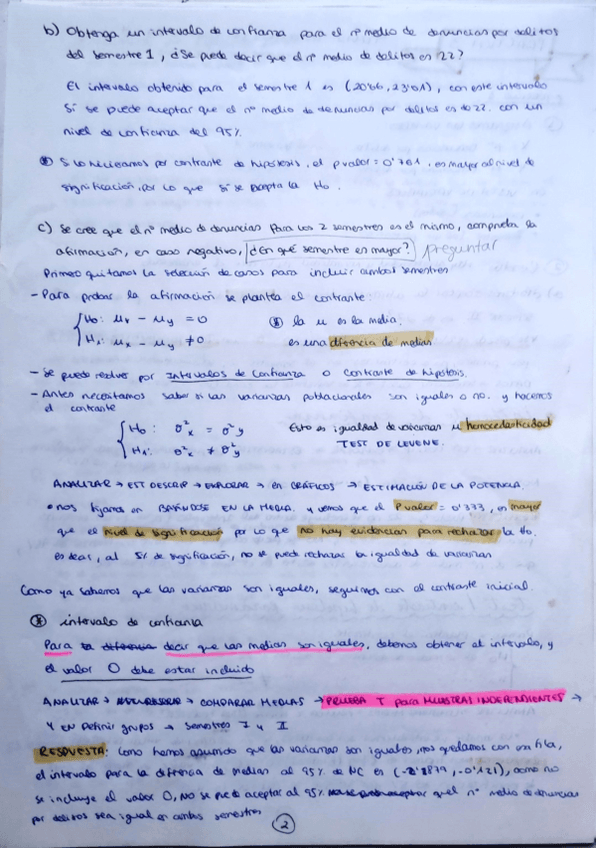 b) Obtenga un intervalo de confianza para el nº medio de denuncias por delitos
del semestre 1, ¿Se puede decir que el nº medio de delitos es 22?
El intervalo obtenido para el semestre 1 es (20'66, 23'01), con este intervalo
Si se puede aceptar que el nº medio de denuncias por delitos es de 22. con un
nivel de confianza del 95%.
Si lo hiciésemos por contraste de hipótesis, el pvalor = 0'761, es mayor al nivel de
significación, por lo que si se acepta la Ho.
c) Se cree que el nº medio de denuncias para los 2 semestres es el mismo, comprueba la
afirmación, en caso negativo, ¿En qué semestre es mayor? preguntar
Primero quitamos la selección de casos para incluir ambos semestres
- Para probar la afirmación se plantea el contraste:
Ho: μx - μy = 0
la μ es la media.
H1: μx - μy ≠ 0
es una diferencia de medias
- Se puede resolver por Intervalos de Confianza o Contraste de hipótesis.
- Antes necesitamos saber si las varianzas poblacionales son iguales o no. y hacemos
el contraste
Ho: σ²x = σ²y
Esto es igualdad de varianzas u homocedasticidad
H1: σ²x ≠ σ²y
TEST DE LEVENE.
ANALIZAR → EST DESCRIP → EXPLORAR → en GRÁFICOS → ESTIMACIÓN DE LA POTENCIA.
nos fijamos en BASÁNDOSE EN LA MEDIA. y vemos que el Pvalor = 0'373, es mayor
que el nivel de significación por lo que no hay evidencias para rechazar la Ho.
es decir, al 5% de significación, no se puede rechazar la igualdad de varianzas
Como ya sabemos que las varianzas son iguales, seguimos con el contraste inicial.
intervalo de confianza
Para la diferencia decir que las medias son iguales, debemos obtener el intervalo, y
el valor 0 debe estar incluido
ANALIZAR → → COMPARAR MEDIAS → PRUEBA T para MUESTRAS INDEPENDIENTES →
y en Definir grupos → Semestres I y II
RESPUESTA: Como hemos asumido que las varianzas son iguales, nos quedamos con esa fila,
el intervalo para la difrencia de medias al 95% de NC es -0'121), como no
se incluye el valor 0, no se puede aceptar al 95% que el nº medio de denuncias
por delitos sea igual en ambos semestres
2